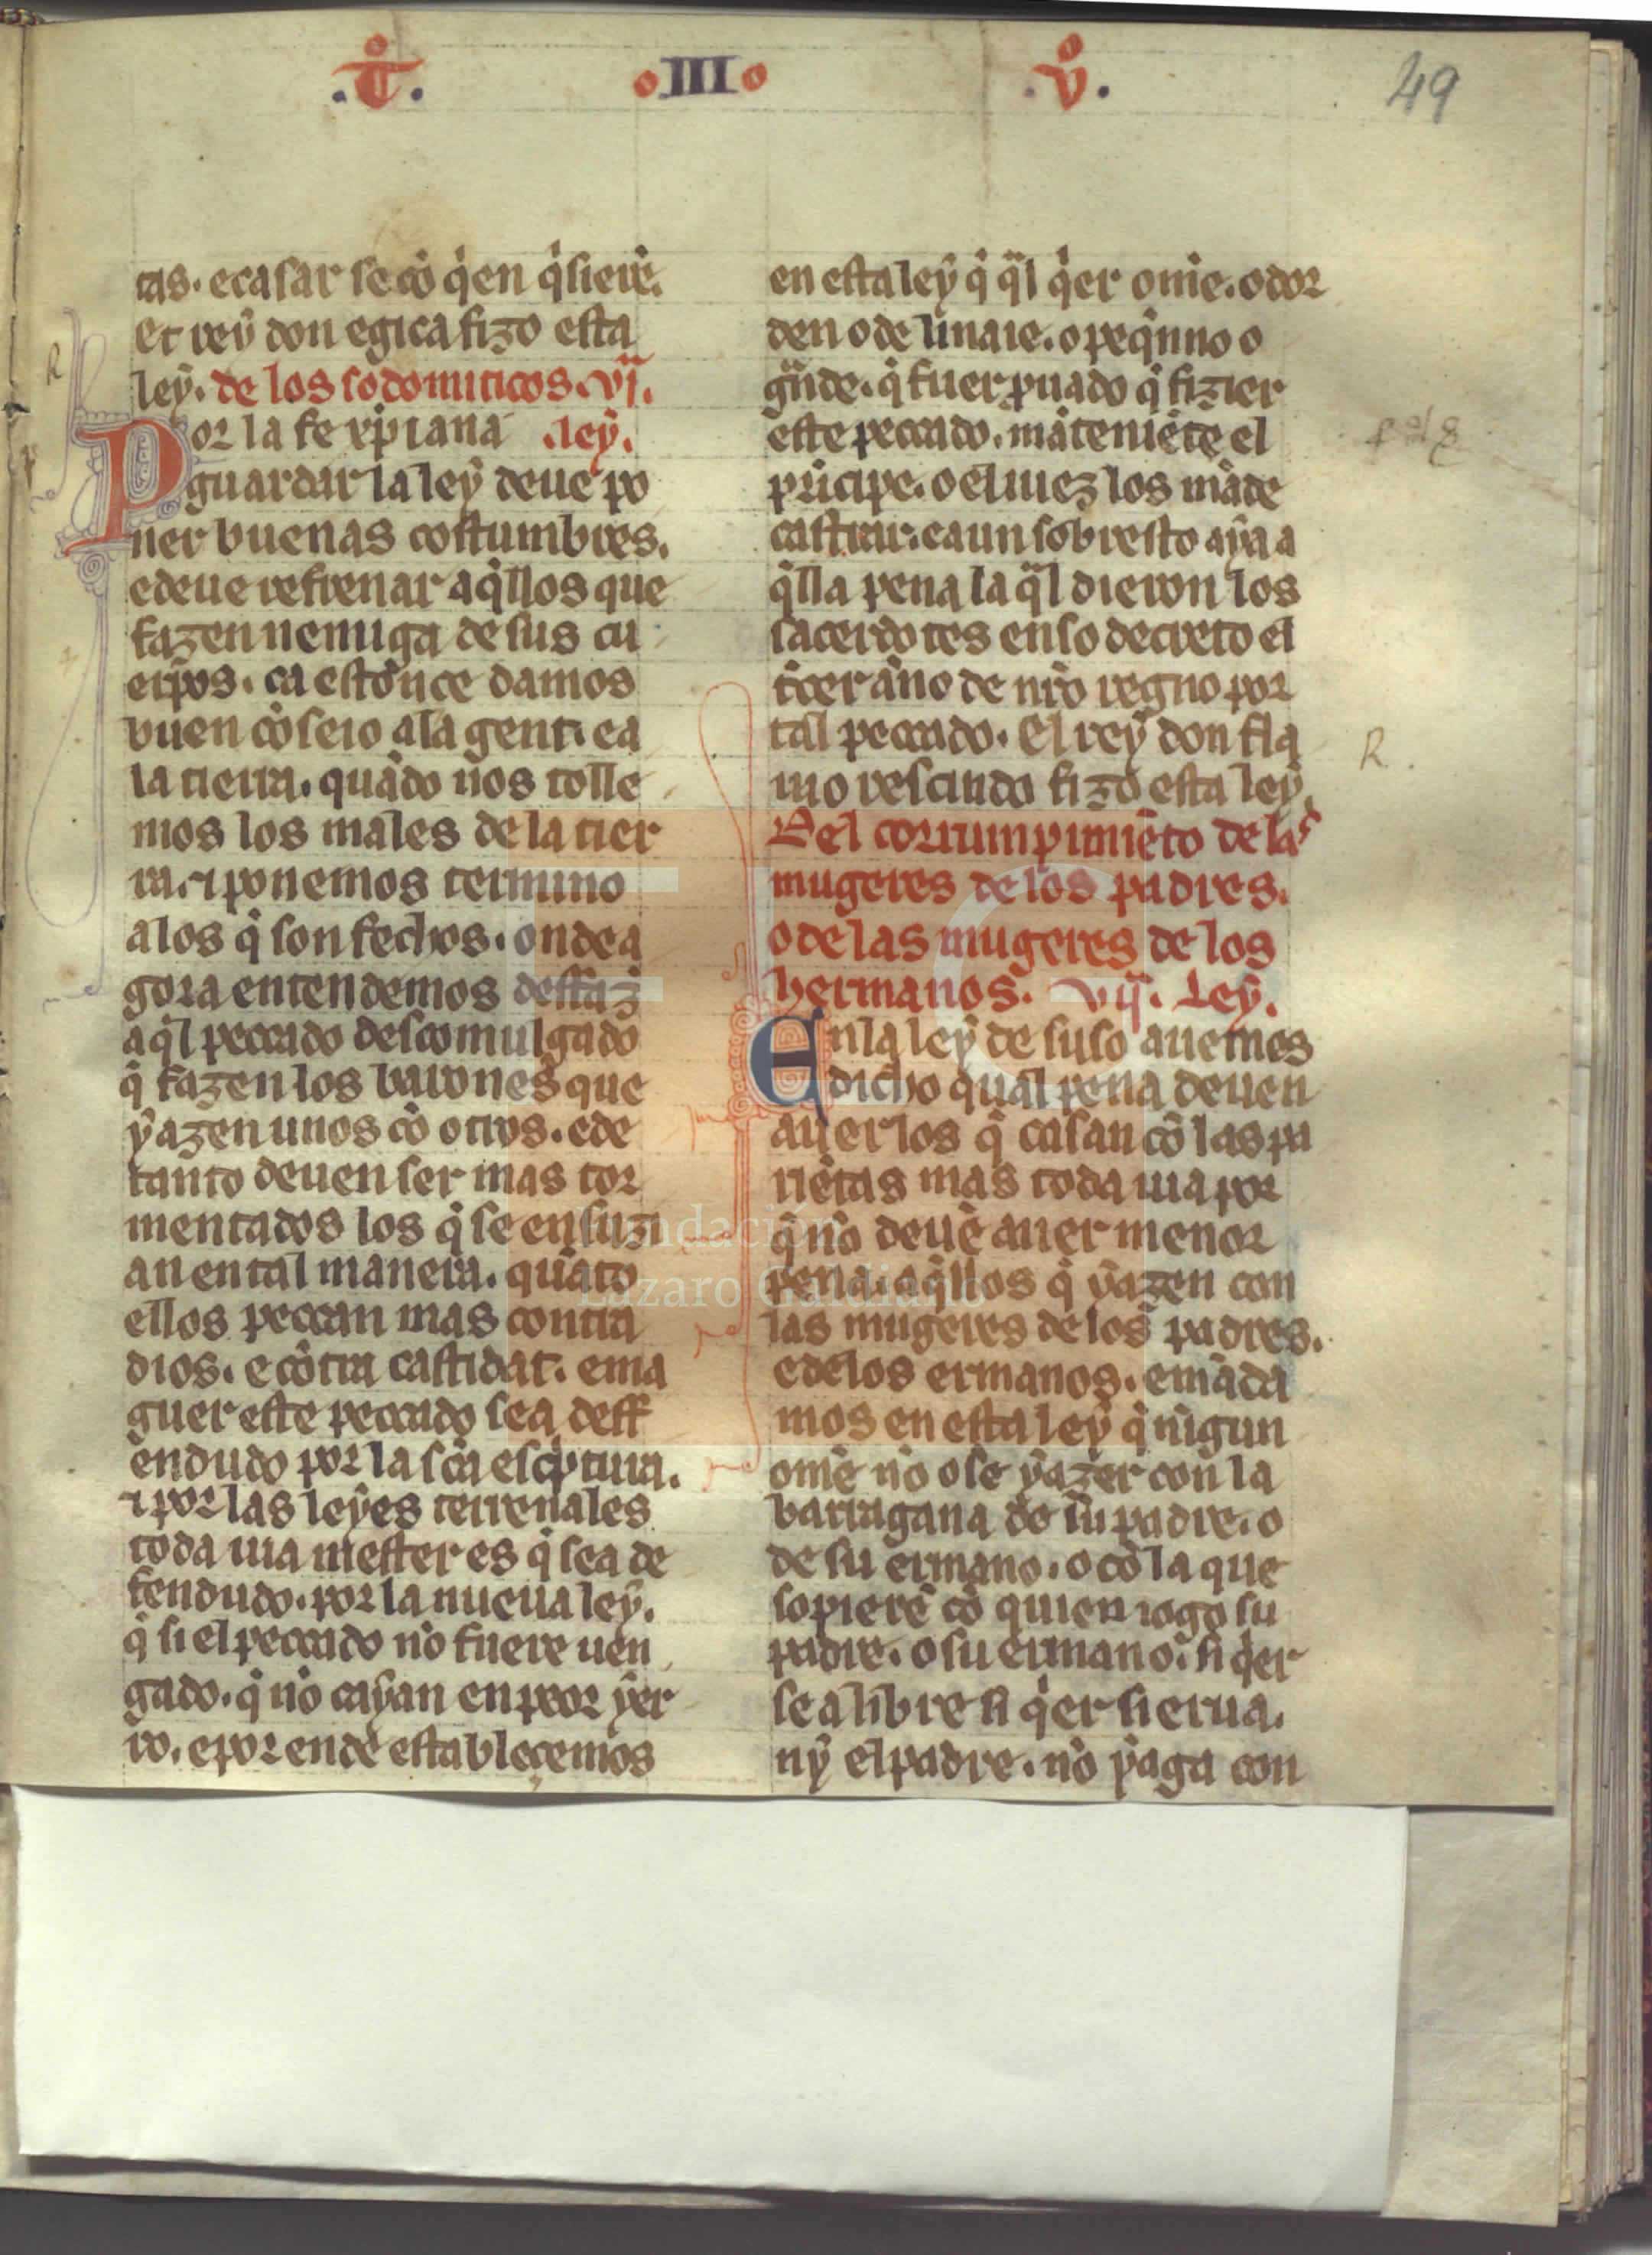 .T͛. oIIIo .v͛. 49
tas. e casar se cō q̇en q̇siere᷑.
Et rey don egica fizo esta
ley. de los sodomiticos. vj.
Por la fe xp̄iana .ley.
guardar la ley deue po
ner buenas costumbres.
e deue refrenar aq̇llos que
fazen nemiga de sus cu
erpos. ca estōnce damos
buen cōseio a la gent. e a
la tierra. quādo nos tolle
mos los males de la tier
ra. ⁊ ponemos termino
a los q̇ son fechos. onde a
gora entendemos deffaz̄
aq̇l peccado descomulgado
q̇ fazen los barones que
yazen unos cō otros. e de
tanto deuen ser mas tor
mentados los q̇ se ensuzi
an en tal manera. quāto
ellos peccan mas contra
dios. e cōtra castidat. e ma
guer este peccado sea deff
endudo por la sc̄a esċptura.
⁊ por las leyes terrenales
toda uia mester es q̇ sea de
fendudo. por la nueua ley.
q̇ si el peccado nō fuere uen
gado. q̇ nō cayan en peor yer
ro. e por ende estableçemos
en esta ley q̇ q̄l q̇er ome. o dor
den o de linaie. o peq̇nno o
gn̄de. q̇ fuer ꝓuado q̇ fizier
este peccado. māteniēte el
pricipe. o el iuez los māde
castrar. e aun sobresto aya a
q̇lla pena la q̄l dieron los
sacerdotes en so decreto el
ṫcer anno de nr̄o regno por
tal peccado. El rey don fla
uio rescindo fizo esta ley.
Del corrumpimiēto de las
mugeres de los padres.
o de las mugeres de los
hermanos. vij. Ley.
En la ley de suso auemos
dicho qual pena deuen
auer los q̇ casan cō las pa
riētas mas toda uia por
q̇ nō deuē auer menor
pena. aq̇llos q̇ yazen con
las mugeres de los padres.
e de los ermanos. e māda
mos en esta ley q̇ nigun
ome nō ose yazer con la
barragana de su padre. o
de su ermano. o cō la que
sopierē cō quien iogo su
padre. o su ermano. si q̇er
sea libre si q̇er sierua.
ny el padre. nō yaga con
R
R.
Fundación
Lázaro Galdiano